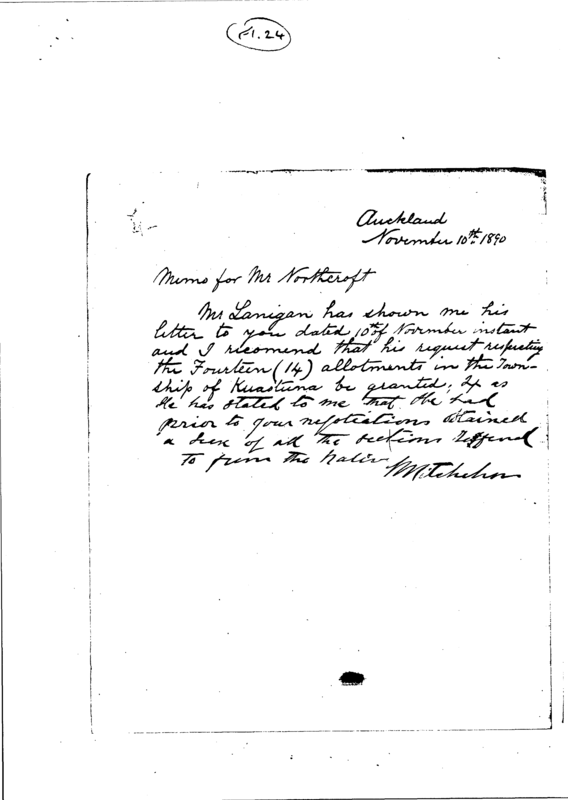 F1.24
Auckland
November 10th 1890
Memo for Mr Northcroft
Mr Lanigan has shown me his
letter to you dated 10th of November instant
and I recomend that his request respecting
the Fourteen (14) allotments in the Town-
ship of Kuaotuna be granted, If as
He has stated to me that He had
prior to your negotiations obtained
a of all the sections
to from the Native
Mitchelson